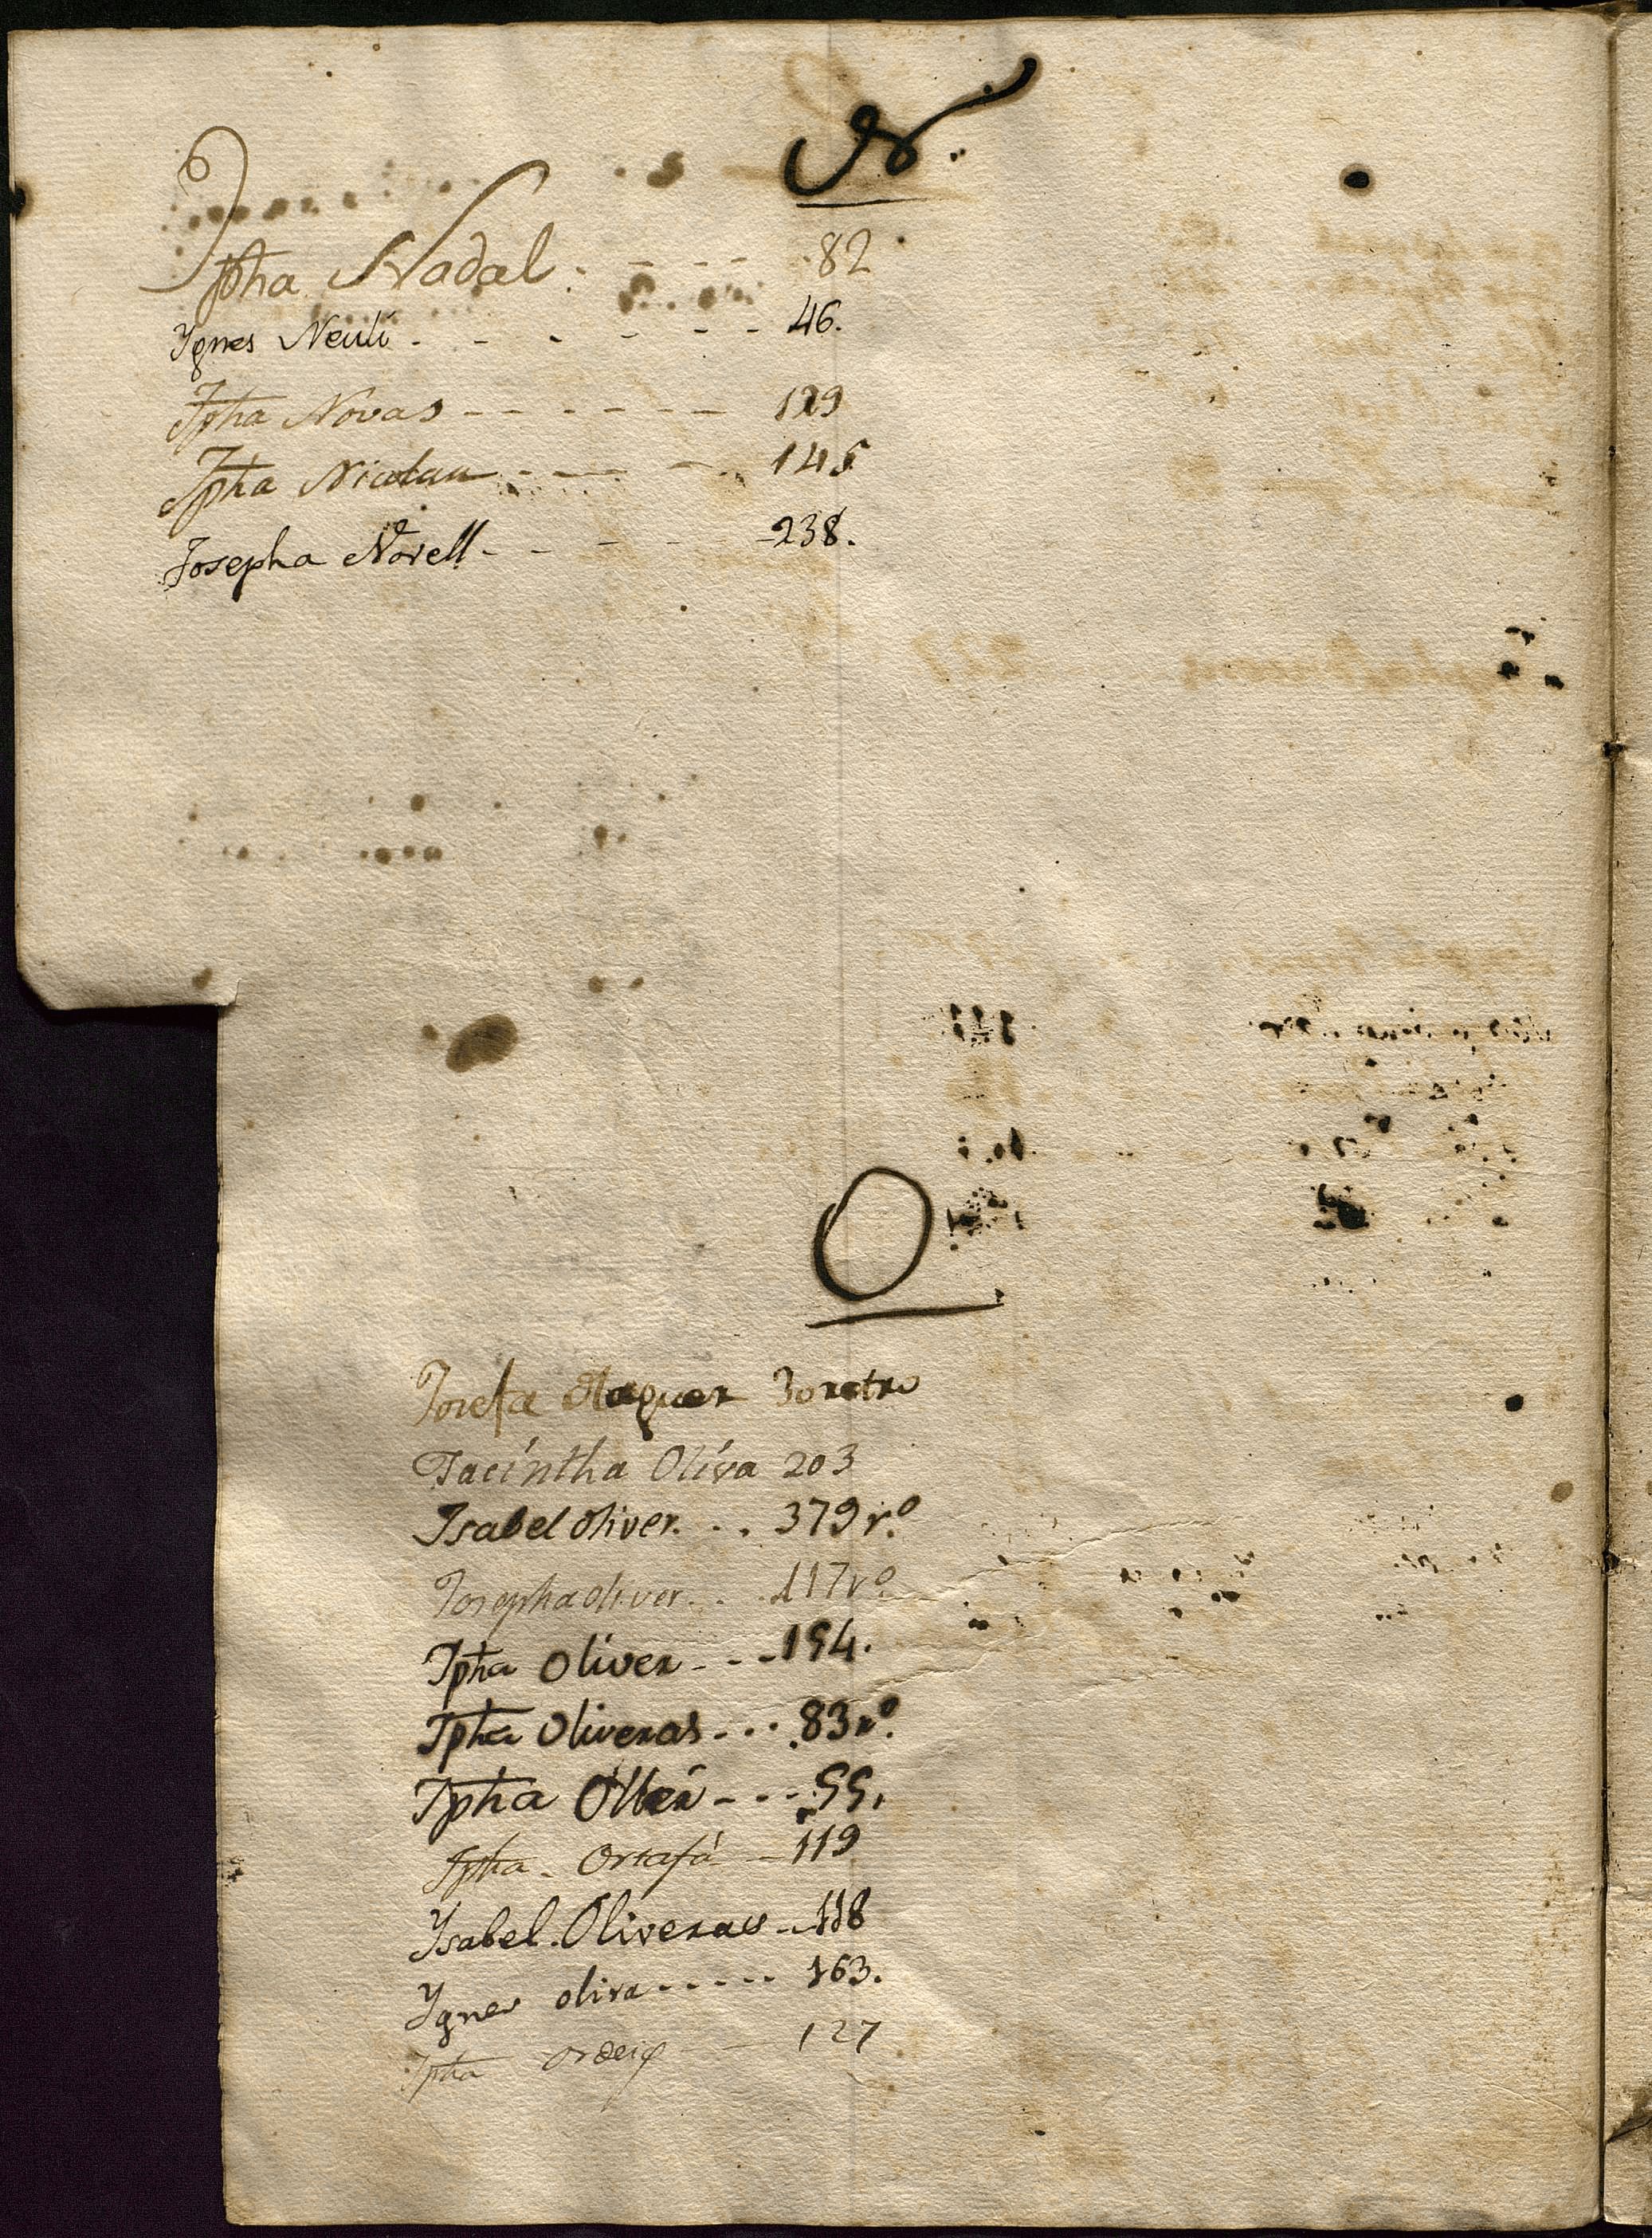 N.
Jpha Nadal. - - - 82
Ignes Neuli - - - - - 46.
Jpha Novas - - - - - - 129
Jpha Nicolau - - - - 145
Josepha Novell - - - - 238.
O
Josefa Olaguer 30 retro
Jacíntha Olíva 203
Isabel Oliver. . . 379 r.º
Josepha Oliver. . . 117 rº
Jpha Oliver - - - 154.
Jpha Oliveras - - - 83 rº.
Jpha Ollér - - - 55.
Jpha - Ortafá - 119
Isabel. Oliveras - 118
Ignes oliva - - - - - 163.
Jpha ordeig - - 127